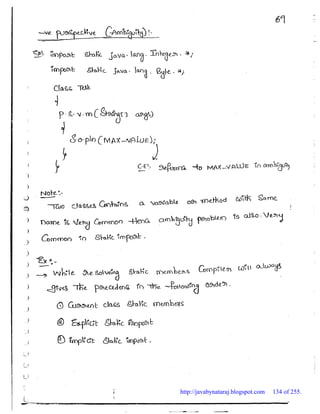 69
-ve perspective (Ambiguity):-
Ex: import static java.lang.Integer.*;
import static java.lang.Byte.*;
class Test
{
p.s.v.m(String[] args)
{
S.o.pln(MAX_VALUE);
}
}
C.E:- reference to MAX_VALUE in ambiguity
Note:-
Two classes Contains a variable or method with Same
name is Very Common Hence ambiguity problem is also Very
Common in static import.
Ex:-
→ While Resolving static members Compiler will always
gives The precedence in The following order.
① Current class static members
② Explicit static import
③ implicit static import.
http://javabynataraj.blogspot.com 134 of 255.